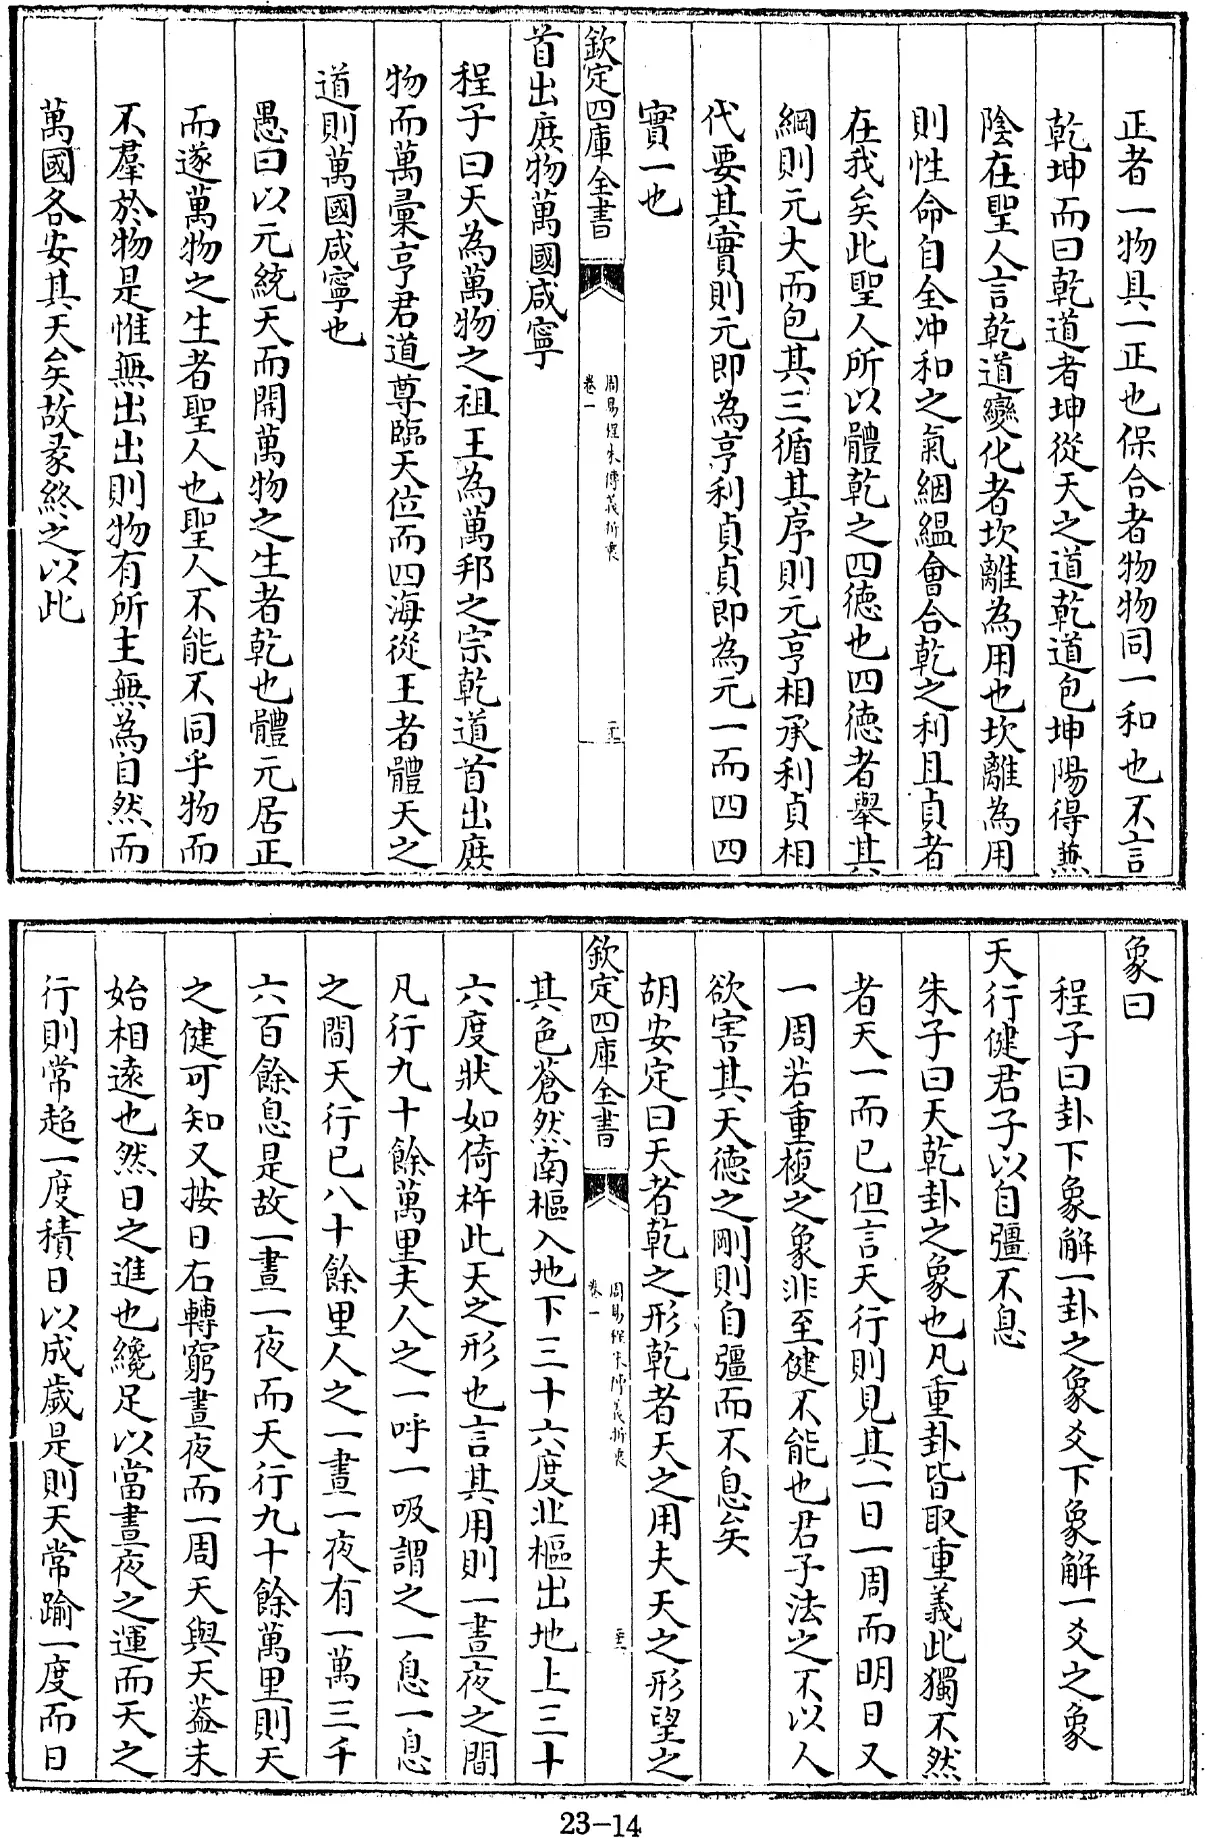 正者一物具一正也保合者物物同一和也不言
乾坤而曰乾道者坤從天之道乾道包坤陽得兼
陰在聖人言乾道變化者坎離為用也坎離為用
則性命自全冲和之氣絪縕會合乾之利且貞者
在我矣此聖人所以體乾之四德也四德者舉其
綱則元大而包其三循其序則元亨相承利貞相
代要其實則元即為亨利貞貞即為元一而四四
實一也
欽定四庫全書
周易程朱傳義折衷
卷一
首出庶物萬國咸寧
程子曰天為萬物之祖王為萬邦之宗乾道首出庶
物而萬彚亨君道尊臨天位而四海從王者體天之
道則萬國咸寧也
愚曰以元統天而開萬物之生者乾也體元居正
而遂萬物之生者聖人也聖人不能不同乎物而
不羣於物是惟無出出則物有所主無為自然而
萬國各安其天矣故彖終之以此
象曰
程子曰卦下象解一卦之象爻下象解一爻之象
天行健君子以自彊不息
朱子曰天乾卦之象也凡重卦皆取重義此獨不然
者天一而已但言天行則見其一日一周而明日又
一周若重複之象非至健不能也君子法之不以人
欲害其天德之剛則自彊而不息矣
胡安定曰天者乾之形乾者天之用夫天之形望之
欽定四庫全書
周易程朱傳義折衷
卷一
其色蒼然南樞入地下三十六度北樞出地上三十
六度狀如倚杵此天之形也言其用則一晝夜之間
凡行九十餘萬里夫人之一呼一吸謂之一息一息
之間天行已八十餘里人之一晝一夜有一萬三千
六百餘息是故一晝一夜而天行九十餘萬里則天
之健可知又按日右轉窮晝夜而一周天與天葢未
始相遠也然日之進也纔足以當晝夜之運而天之
行則常超一度積日以成歲是則天常踰一度而日
23-14